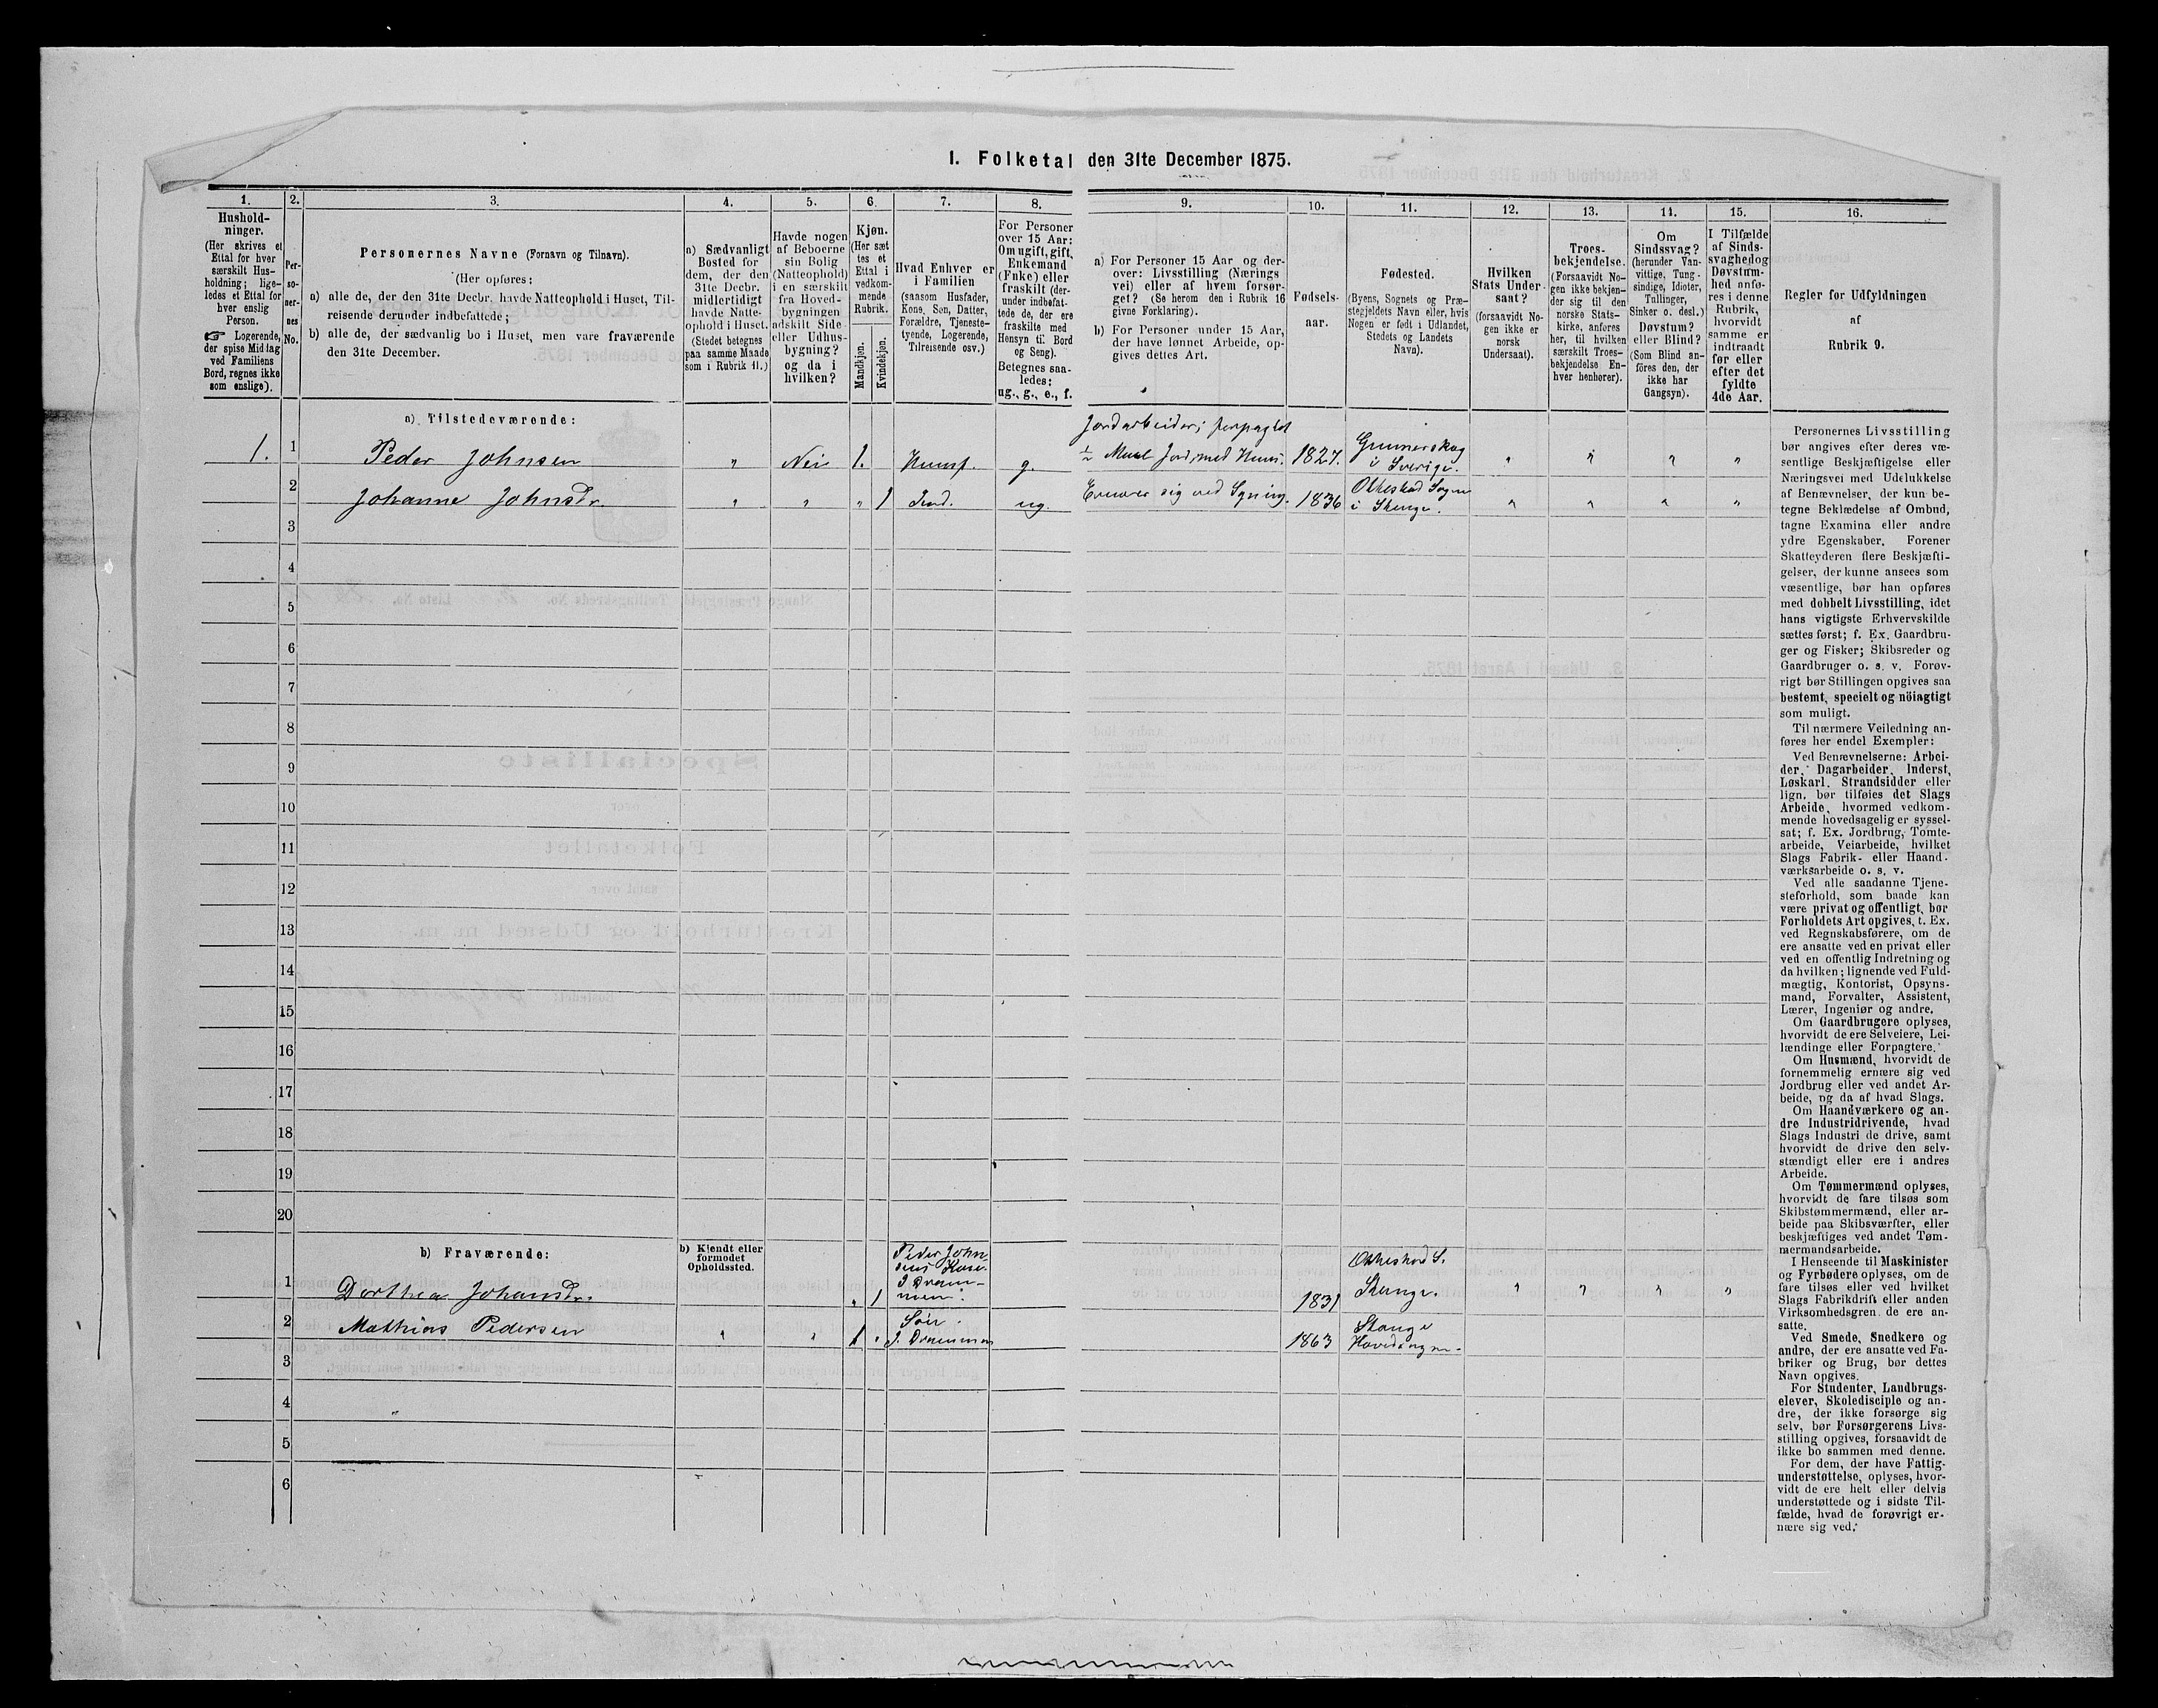 I. Folketal den 31te December 1875.
1.
Hushold-
ninger.
(Her skrives et
Ettal for hver
særskilt Hus-
holdning; lige-
ledes et Ettal for
hver enslig
Person.
☞ Logerende,
der spise Middag
ved Familiens
Bord, regnes ikke
som enslige).
2.
Per-
so-
ner-
nes
No.
3.
Personernes Navne (Fornavn og Tilnavn).
(Her opføres:
a) alle de, der den 31te Decbr. havde Natteophold i Huset, Til-
reisende derunder indbefattede;
b) alle de, der sædvanlig bo i Huset, men vare fraværende
den 31te December.
4.
a) Sædvanligt
Bosted for
dem, der den
31te Decbr.
midlertidigt
havde Natte-
ophold i Huset.
(Stedet betegnes
paa samme Maade
som i Rubrik 11.)
5.
Havde nogen
af Beboerne
sin Bolig
(Natteophold)
i en særskilt
fra Hoved-
bygningen
adskilt Side-
eller Udhus-
bygning?
og da i
hvilken?
6.
Kjøn.
(Her sæt
tes et
Ettal i
vedkom-
mende
Rubrik.
Mandkjøn.
Kvindekjøn.
7.
Hvad Enhver er
i Familien
(saasom Husfader,
Kone, Søn, Datter,
Forældre, Tjeneste-
tyende, Logerende,
Tilreisende osv.)
8.
For Personer
over 15 Aar:
Om ugift, gift,
Enkemand
(Enke) eller
fraskilt (der-
under indbefat-
tede de, der ere
fraskilte med
Hensyn til Bord
og Seng).
Betegnes saa-
ledes:
ug., g., e., f.
9.
a) For Personer 15 Aar og der-
over: Livsstilling (Nærings
vei) eller af hvem forsør-
get? (Se herom den i Rubrik 16
givne Forklaring).
b) For Personer under 15 Aar,
der have lønnet Arbeide, op-
gives dettes Art.
10.
Fødsels-
aar.
11.
Fødested.
(Byens, Sognets og Præ-
stegjeldets Navn eller, hvis
Nogen er født i Udlandet,
Stedets og Landets
Navn).
12.
Hvilken
Stats Under-
saat?
(forsaavidt No-
gen ikke er
norsk
Undersaat).
13.
Troes-
bekjendelse.
(Forsaavidt No-
gen ikke bekjen-
der sig til den
norske Stats-
kirke, anføres
her, til hvilken
særskilt Troes-
bekjendelse En-
hver henhører).
14.
Om
Sindssvag?
(herunder Van-
vittige, Tung-
sindige, Idioter,
Tullinger,
Sinker o. desl.)
Døvstum?
eller Blind?
(Som Blind an-
føres den, der
ikke har
Gangsyn).
15.
I Tilfælde
af Sinds-
svaghed og
Døvstum-
hed anfø-
res i denne
Rubrik,
hvorvidt
samme er
indtraadt
før eller
efter det
fyldte
4de Aar.
16.
Regler for Udfyldningen
af
Rubrik 9.
a) Tilstedeværende:
1. 1 Peder Johnsen " Nei 1. Huusf. g. Jordarbeider; forpagtet
½ Maal Jord med Huus. 1827. Gunnerskog
i Sverige. " " " "
2 Johanne Johnsdr. " " " 1 Ind. ug. Ernærer sig ved Syning. 1836 Ottestad Sogn
i Stange. " " " "
3
4
5
6
7
8
9
10
11
12
13
14
15
16
17
18
19
20
b) Fraværende:
b) Kjendt eller
formodet
Opholdssted.
1 Dorthea Johansdr. " 1 Peder John
sens Kone.
I Dram-
men. 1831 Ottestad S.
Stange. " " " "
2 Mathias Pedersen " " 1 " Søn.
I. Drammen 1863 Stange
Hovedsogn.
3
4
5
6
Personernes Livsstilling
bør angives efter deres væ-
sentlige Beskjæftigelse eller
Næringsvei med Udelukkelse
af Benævnelser, der kun be-
tegne Beklædelse af Ombud,
tagne Examina eller andre
ydre Egenskaber. Forener
Skatteyderen flere Beskjæfti-
gelser, der kunne ansees som
væsentlige, bør han opføres
med dobbelt Livsstilling, idet
hans vigtigste Erhvervskilde
sættes først; f. Ex. Gaardbru-
ger og Fisker; Skibsreder og
Gaardbruger o. s. v. Forøv-
rigt bør Stillingen opgives saa
bestemt, specielt og nöiagtigt
som muligt.
Til nærmere Veiledning an-
føres her endel Exempler:
Ved Benævnelserne: Arbei-
der, Dagarbeider, Inderst,
Løskarl, Strandsidder eller
lign. bør tilføies det Slags
Arbeide, hvormed vedkom-
mende hovedsagelig er syssel-
sat; f. Ex. Jordbrug, Tomte-
arbeide, Veiarbeide, hvilket
Slags Fabrik- eller Haand-
værksarbeide o. s. v.
Ved alle saadanne Tjene-
steforhold, som baade kan
være privat og offentligt, bør
Forholdets Art opgives, t. Ex.
ved Regnskabsførere, om de
ere ansatte ved en privat eller
ved en offentlig Indretning og
da hvilken; lignende ved Fuld-
mægtig, Kontorist, Opsyns-
mand, Forvalter, Assistent,
Lærer, Ingeniør og andre.
Om Gaardbrugere oplyses,
hvorvidt de ere Selveiere, Lei-
lændinge eller Forpagtere.
Om Husmænd, hvorvidt de
fornemmelig ernære sig ved
Jordbrug eller ved andet Ar-
beide, og da af hvad Slags.
Om Haandværkere og an-
dre Industridrivende, hvad
Slags Industri de drive, samt
hvorvidt de drive den selv-
stændigt eller ere i andres
Arbeide.
Om Tømmermænd oplyses,
hvorvidt de fare tilsøs som
Skibstømmermænd, eller ar-
beide paa Skibsværfter, eller
beskjæftiges ved andet Tøm-
mermandsarbeide.
I Henseende til Maskinister
og Fyrbødere oplyses, om de
fare tilsøs eller ved hvilket
Slags Fabrikdrift eller anden
Virksomhedsgren de ere an-
satte.
Ved Smede, Snedkere og
andre, der ere ansatte ved Fa-
briker og Brug, bør dettes
Navn opgives.
For Studenter, Landbrugs-
elever, Skoledisciple og an-
dre, der ikke forsørge sig
selv, bør Forsørgerens Livs-
stilling opgives, forsaavidt de
ikke bo sammen med denne.
For dem, der have Fattig-
understøttelse, oplyses, hvor-
vidt de ere helt eller delvis
understøttede og i sidste Til-
fælde, hvad de forøvrigt er-
nære sig ved.